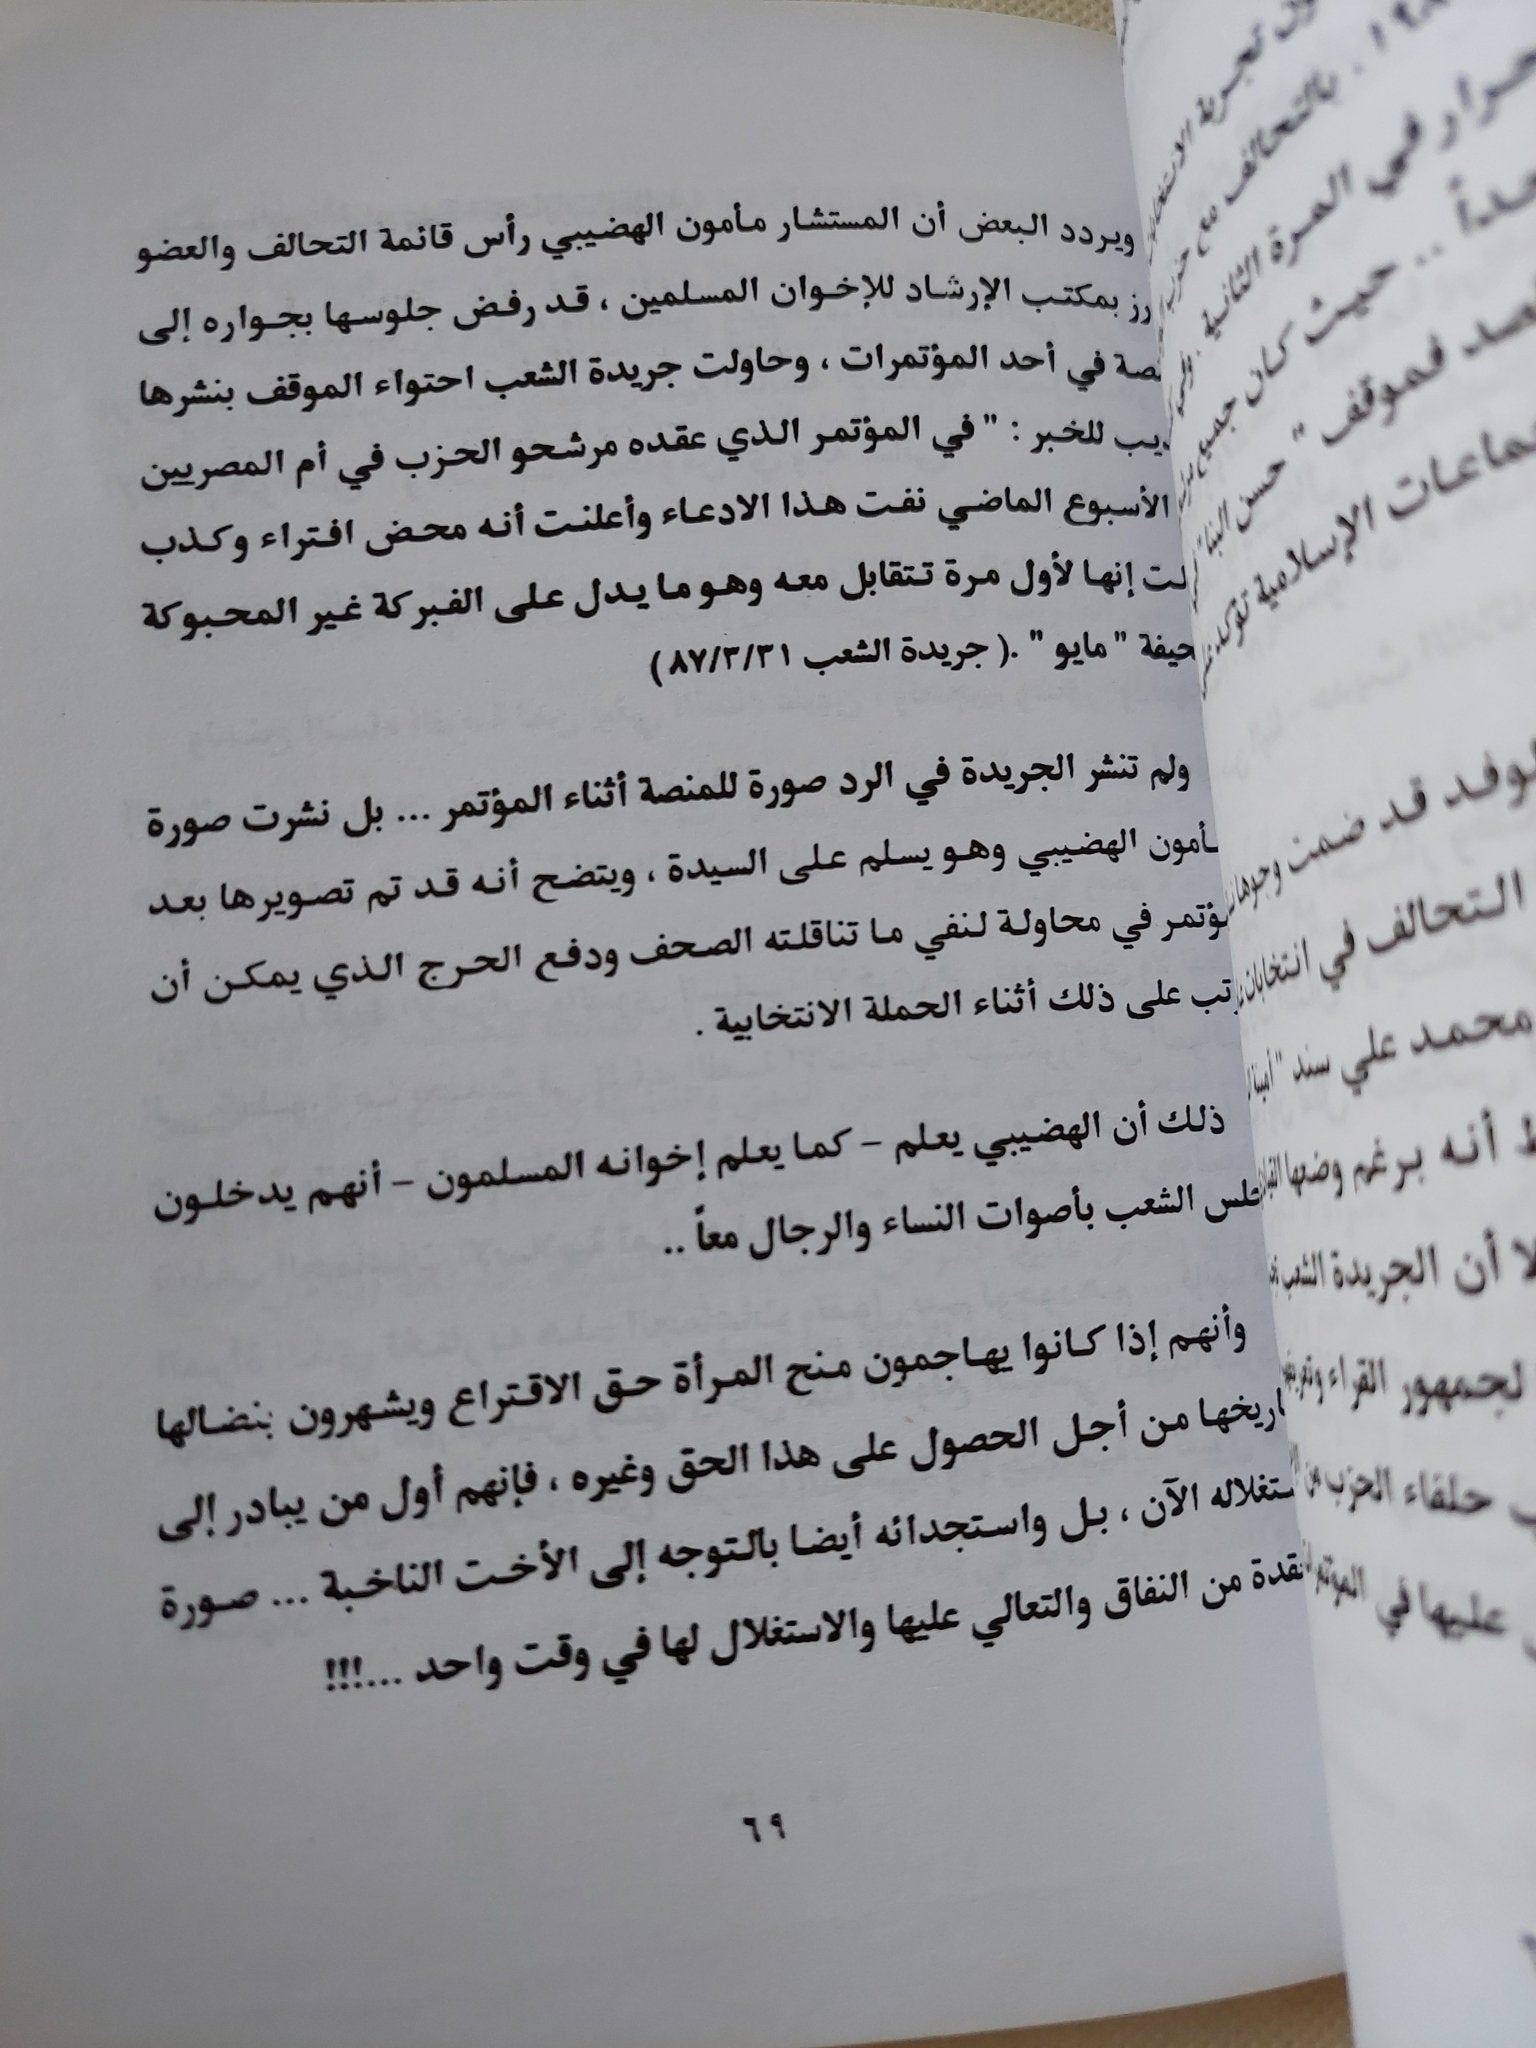 ويردد البعض أن المستشار مأمون الهضيبي رأس قائمة التحالف والعضو
رز بمكتب الإرشاد للإخوان المسلمين ، قد رفض جلوسها بجواره إلى
صة في أحد المؤتمرات ، وحاولت جريدة الشعب احتواء الموقف بنشرها
ذيب للخبر : " في المؤتمر الذي عقده مرشحو الحزب في أم المصريين
الأسبوع الماضي نفت هذا الادعاء وأعلنت أنه محض افتراء وكذب
لت إنها لأول مرة تتقابل معه وهو ما يدل على الفبركة غير المحبوكة
حيفة " مايو " .( جريدة الشعب ٨٧/٣/٣١ )
ولم تنشر الجريدة في الرد صورة للمنصة أثناء المؤتمر ... بل نشرت صورة
أمون الهضيبي وهو يسلم على السيدة ، ويتضح أنه قد تم تصويرها بعد
ؤتمر في محاولة لنفي ما تناقلته الصحف ودفع الحرج الذي يمكن أن
رتب على ذلك أثناء الحملة الانتخابية .
ذلك أن الهضيبي يعلم – كما يعلم إخوانه المسلمون – أنهم يدخلون
جلس الشعب بأصوات النساء والرجال معاً ..
وأنهم إذا كانوا يهاجمون منح المرأة حق الاقتراع ويشهرون بنضالها
اريخها من أجل الحصول على هذا الحق وغيره ، فإنهم أول من يبادر إلى
ستغلاله الآن ، بل واستجدائه أيضا بالتوجه إلى الأخت الناخبة ... صورة
قدة من النفاق والتعالي عليها والاستغلال لها في وقت واحد ...!!!
٦٩
تجربة
بالتحالف مع
في المرة الثانية
.. حيث كان جميع
فموقف " حسن البنا"
الإسلامية تؤكد
قد ضمت وجوها
التحالف في انتخابات
محمد علي سند "أمينة
أنه برغم وضعها
أن الجريدة الشعب
لجمهور القراء
حلفاء الحزب من
عليها في المؤتمر